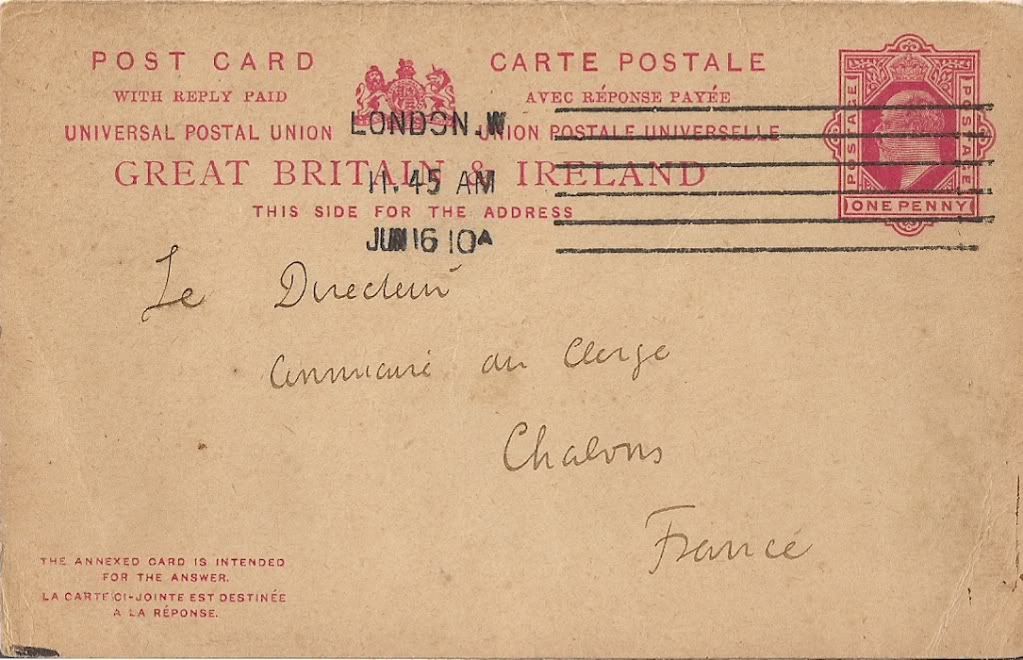 POST CARD
WITH REPLY PAID
CARTE POSTALE
AVEC RÉPONSE PAYÉE
UNIVERSAL POSTAL UNION
UNION POSTALE UNIVERSELLE
GREAT BRITAIN & IRELAND
THIS SIDE FOR THE ADDRESS
POSTAGE
POSTAGE
ONE PENNY
LONDON.W
11.45 AM
JUN 16 10A
Le Directeur
Annuaire du Clerge
Chalons
France
THE ANNEXED CARD IS INTENDED
FOR THE ANSWER.
LA CARTE CI-JOINTE EST DESTINÉE
A LA RÉPONSE.